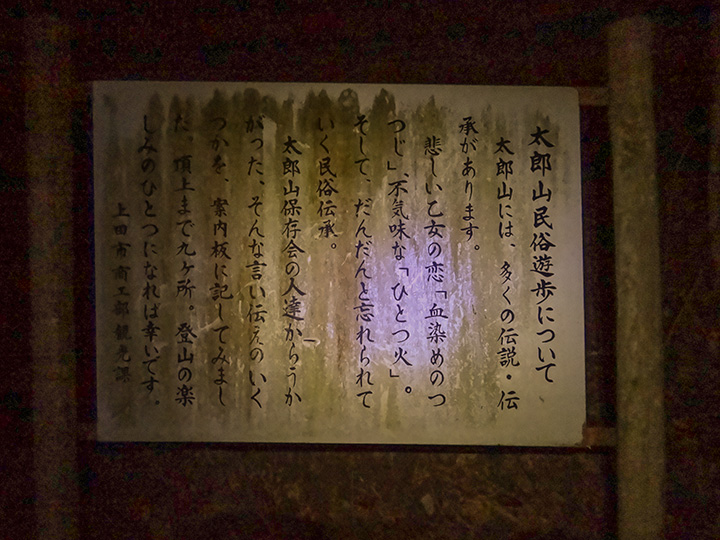 太郎山民俗遊歩について
太郎山には、多くの伝説・伝
承があります。
悲しい乙女の恋「血染めのつ
つじ」、不気味な「ひとつ火」。
そして、だんだんと忘れられて
いく民俗伝承。
太郎山保存会の人達からうか
がった、そんな言い伝えのいく
つかを、案内板に記してみまし
た、頂上まで九ケ所。登山の楽
しみのひとつになれば幸いです。
上田市商工部観光課